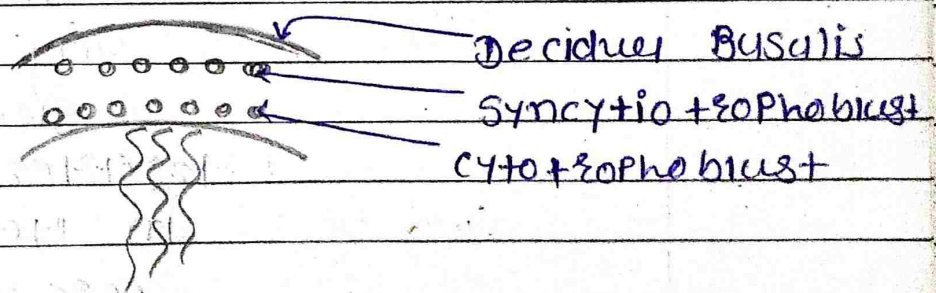 Decidua Basalis
Syncytiotrophoblast
Cytotrophoblast